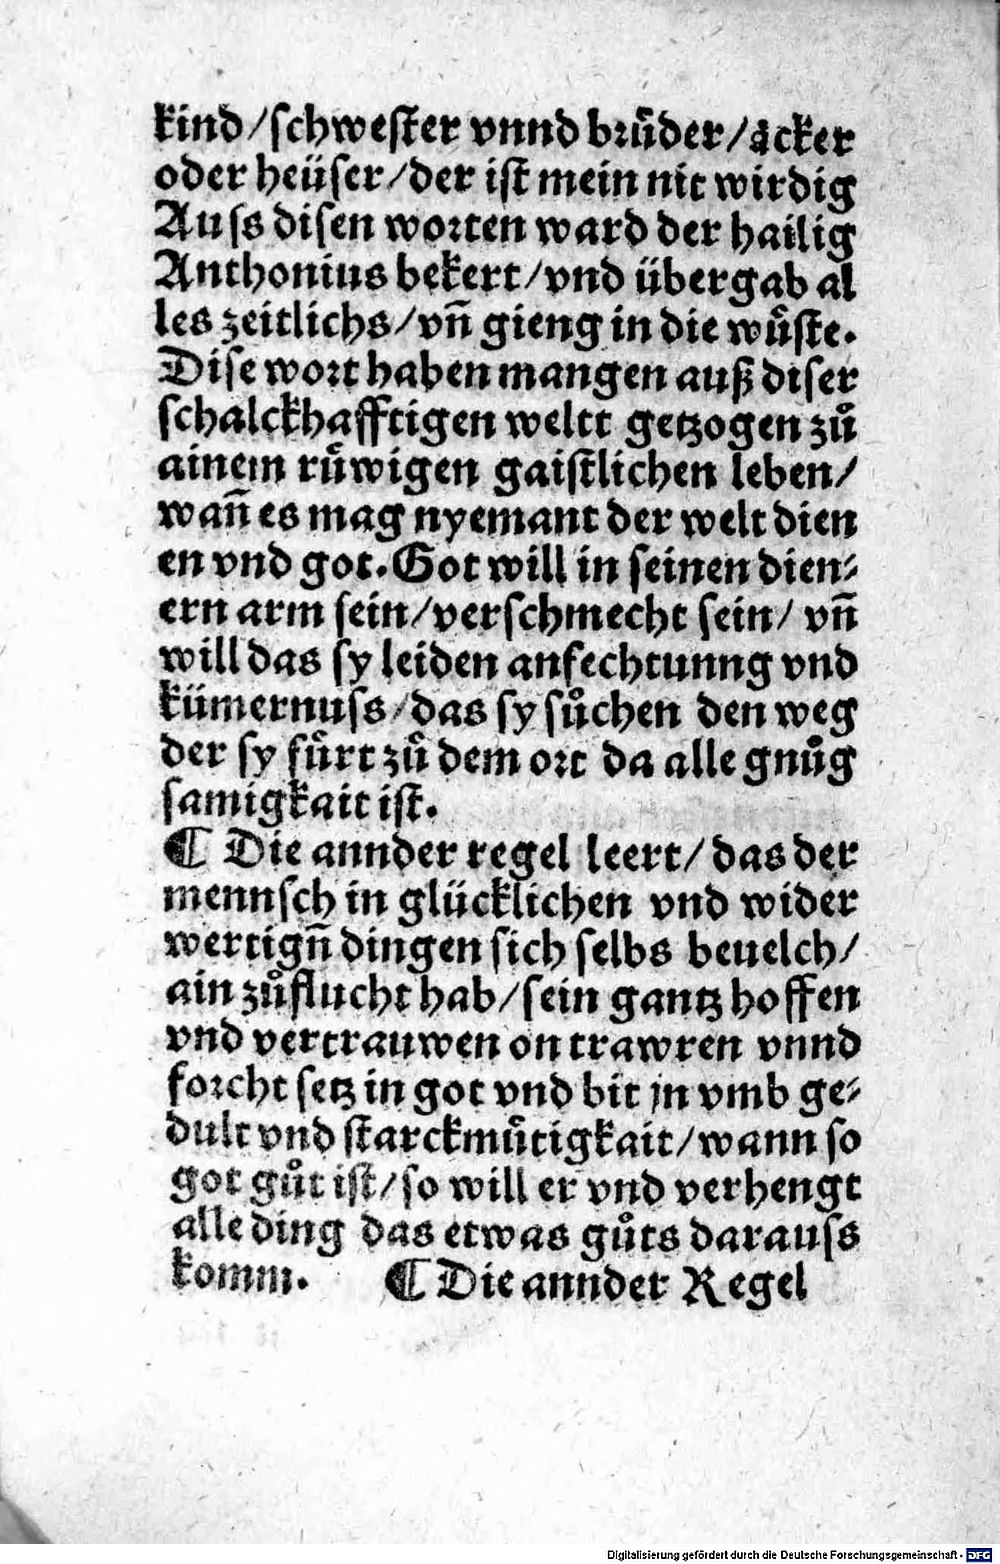 kind/schwester vnnd brůder/åcker
oder heüser/der ist mein nit wirdig
Auss disen worten ward der hailig
Anthonius bekert/vnd übergab al
les zeitlichs/vn̄ gieng in die wůste.
Dise wort haben mangen auß diser
schalckhafftigen weltt getzogen zů
ainem růwigen gaistlichen leben/
wan̄ es mag nyemant der welt dien
en vnd got. Got will in seinen dien⸗
ern arm sein/verschmecht sein/ vn̄
will das sy leiden anfechtunng vnd
kümernuss/das sy sůchen den weg
der sy fůrt zů dem ort da alle gnůg
samigkait ist.
¶ Die annder regel leert/das der
mennsch in glücklichen vnd wider
wertign̄ dingen sich selbs beuelch/
ain zůflucht hab/sein gantz hoffen
vnd vertrauwen on trawren vnnd
forcht setz in got vnd bit jn vmb ge⸗
dult vnd starckmůtigkait/wann so
got gůt ist/so will er vnd verhengt
alle ding das etwas gůts darauss
komm. ¶ Die annder Regel
Digitalisierung gefördert durch die Deutsche Forschungsgemeinschaft - DFG